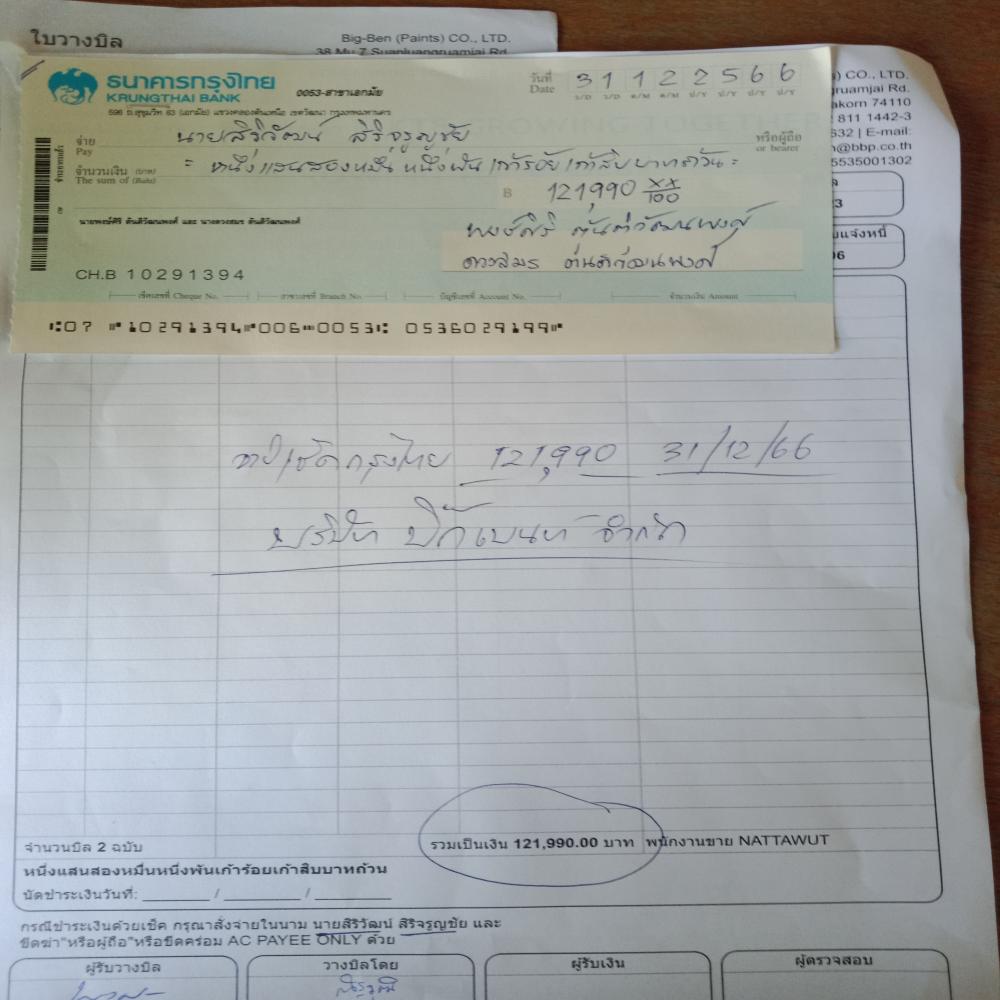 ใบวางบิล
Big-Ben (Paints) CO., LTD.
38 Mu 7 Suanluangruamjai Rd.
) CO., LTD.
gruamjai Rd.
akorn 74110
811 1442-3
632 | E-mail:
@bbp.co.th
5535001302
3
บแจ้งหนี้
06
ธนาคารกรุงไทย
KRUNGTHAI BANK
0053-สาขาเอกมัย
วันที่ 3 1 1 2 2 5 6 6
Date
จ่าย นายสิริวัฒน์ สิริจรูญชัย หรือผู้ถือ
Pay or bearer
จำนวนเงิน (บาท) = หนึ่งแสนสองหมื่นหนึ่งพันเก้าร้อยเก้าสิบบาทถ้วน =
The sum of (Baht)
B 121,990 XX/100
นายพงษ์ศิริ ตันติวัฒนพงศ์ และ นางดวงสมร ตันติวัฒนพงศ์
พงษ์ศิริ ตันติวัฒนพงศ์
ดวงสมร ตันติวัฒนพงศ์
CH.B 10291394
เช็คเลขที่ Cheque No. สาขาเลขที่ Branch No. บัญชีเลขที่ Account No. จำนวนเงิน Amount
07 10291394 006 0053 0536029199
จ่ายเช็คกรุงไทย 121,990 31/12/66
บริษัท บิ๊กเบนท์ จำกัด
จำนวนบิล 2 ฉบับ รวมเป็นเงิน 121,990.00 บาท พนักงานขาย NATTAWUT
หนึ่งแสนสองหมื่นหนึ่งพันเก้าร้อยเก้าสิบบาทถ้วน
นัดชำระเงินวันที่: ______ / ______ / ______
กรณีชำระเงินด้วยเช็ค กรุณาสั่งจ่ายในนาม นายสิริวัฒน์ สิริจรูญชัย และ
ขีดฆ่า"หรือผู้ถือ"หรือขีดคร่อม AC PAYEE ONLY ด้วย
ผู้รับวางบิล วางบิลโดย ผู้รับเงิน ผู้ตรวจสอบ